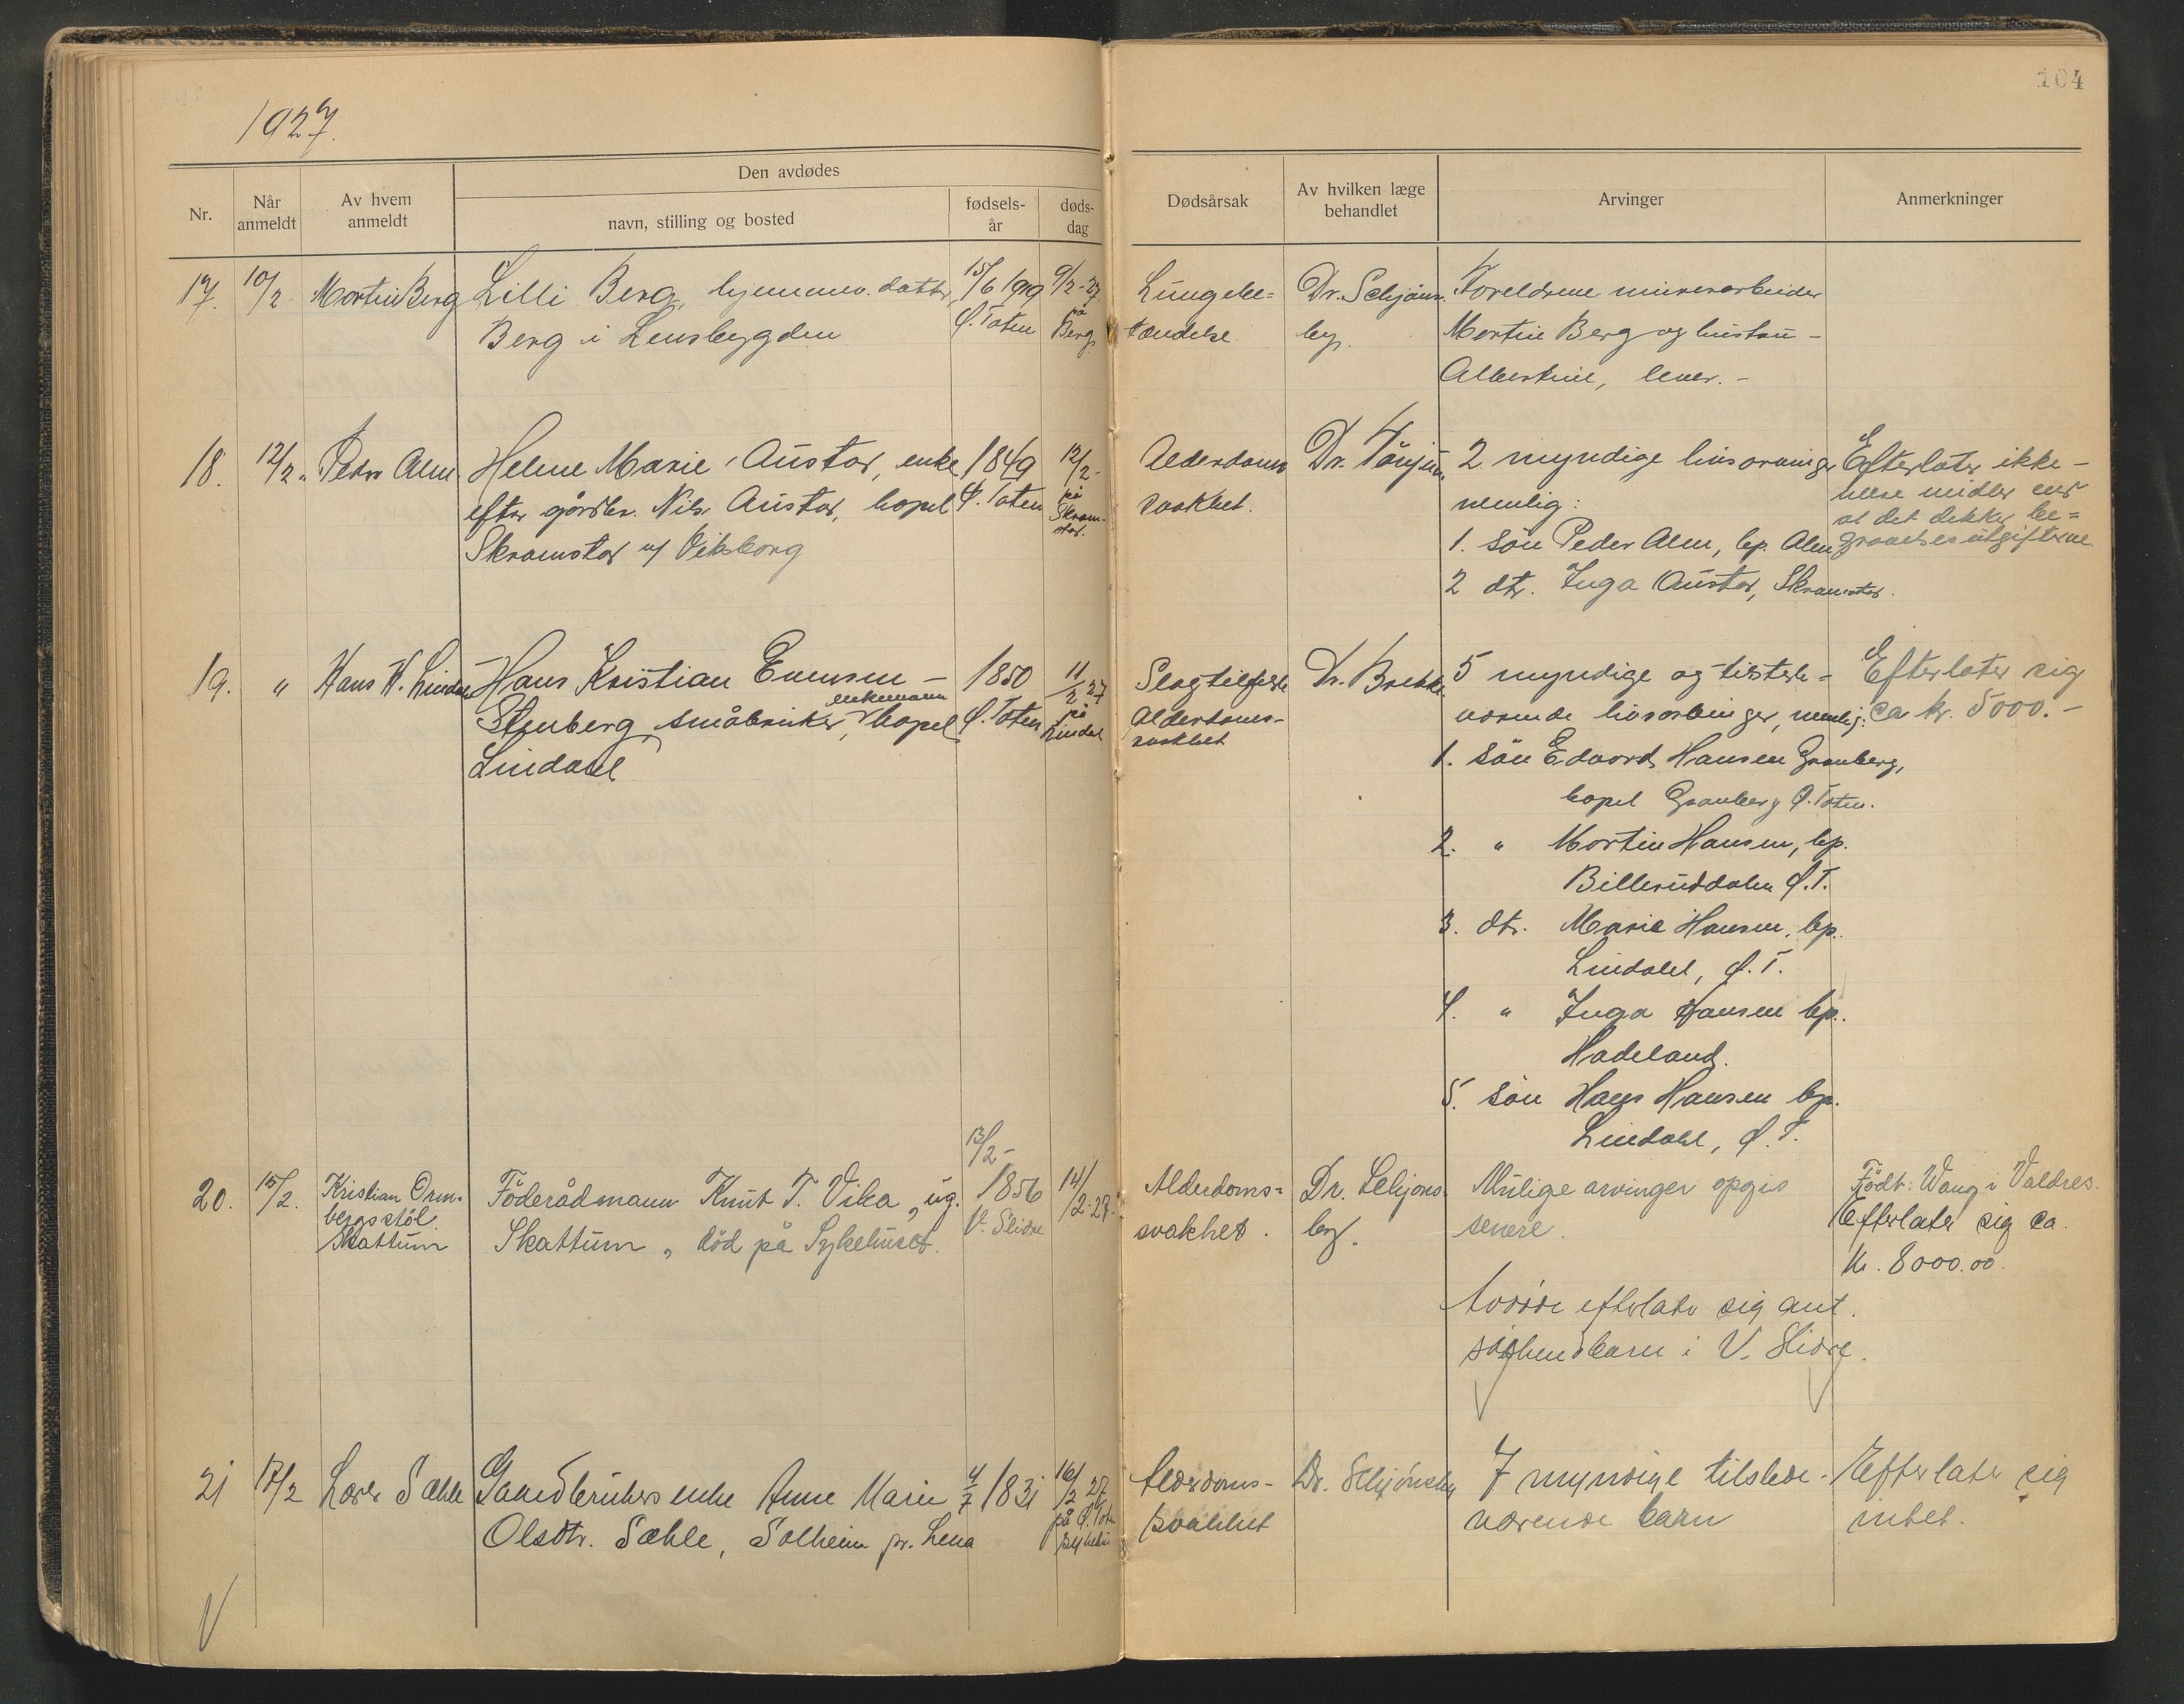 104
1927.
Nr.
Når anmeldt
Av hvem anmeldt
Den avdødes
navn, stilling og bosted
fødsels-år
døds-dag
Dødsårsak
Av hvilken læge behandlet
Arvinger
Anmerkninger
17. 10/2 Martin Berg Lilli Berg, hjemmev. datter 15/6 1919 9/2-27
Berg i Lensbygden Ø. Toten på Berg.
Lungebe=
tændelse.
Dr. Schjöns
bg.
Foreldrene murerarbeider
Martin Berg og hustru -
Albertine, lever. -
18. 12/2 " Peder Alm. Helene Marie Austad, enke 1849 12/2-
efter gårdbr. Nils Austad, bopel Ø. Toten på
Skramstad Skramstad.
Alderdoms
svakhet.
Dr.
2 myndige livsarvinger
nemlig:
1. sön Peder Alm, bp. Alm
2 dtr. Inga Austad, Skramstad.
Efterlater ikke -
mere midler end
at det dekker be=
gravelsesutgifterne
19. " Hans H. Lindal Hans Kristian Evensen - 1850 11/2 27
enkemann
Stenberg, småbruker, bopel Ø. Toten på
Lindahl Lindal
Slagtilfelde
Alderdoms-
svakhet
Dr. Brekke
5 myndige og tilstede=
værende livsarvinger, nemlig:
1. sön Edvard Hansen Granberg,
bopel Granberg Ø. Toten.
2. " Martin Hansen, bp.
Billeruddalen Ø.T.
3. dtr. Marie Hansen, bp.
Lindahl, Ø.T.
4. " Inga Hansen bp.
Hadeland.
5. sön Hans Hansen bp.
Lindahl, Ø.T.
Efterlater sig
ca kr. 5000.-
13/2-
20. 15/2. Kristian Orm- Föderådmann Knut T. Vika, ug. 1856 14/2-27.
bergsstöl. V. Slidre
Skattum Skattum, död på Sykehuset.
Alderdoms=
svakhet.
Dr. Schjöns-
berg.
Mulige arvinger opgis
senere.
Avdöde efterlater sig ant.
söskendbarn i V. Slidre.
Födt: Wang i Valdres.
Efterlater sig ca.
Kr. 8000.00.
21 17/2 Lars Sæhle Gaardbrukerenke Anne Marie 4/7 1831 16/2 27
Olsdtr. Sæhle, Solheim pr. Lena på Ø. Tot.
sykehus
Alderdoms-
svakhet
Dr. Schjönsby
7 myndige tilstede-
værende barn
Efterlater sig
intet.